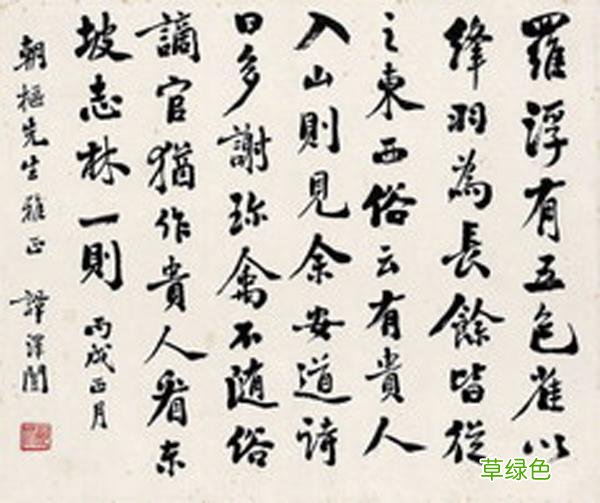 羅浮有五色雀以
絳羽為長餘皆從
之東西俗云有貴人
入山則見余安道詩
曰多謝珍禽不随俗
謫官猶作貴人看東
坡志林一則 丙戌正月
朝樞先生雅正 譚澤闓
草绿色